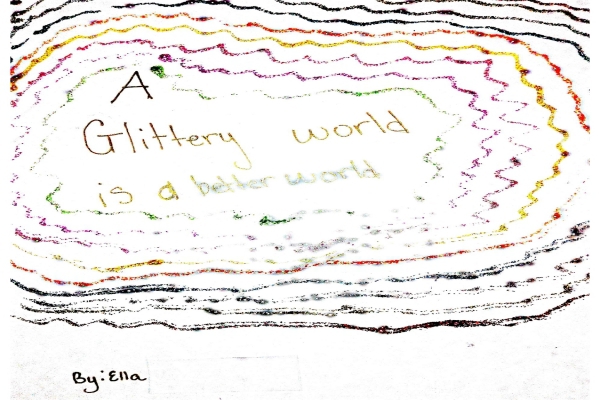 A
Glittery world
is a better world
By: Ella